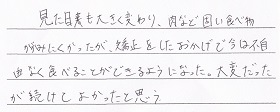 見た目素も大きく変わり、肉など固い食べ物
がみにくかったが、矯正をしたおかげで今は不自
由なく食べることができるようになった。大変だった
が続けてよかったと思う